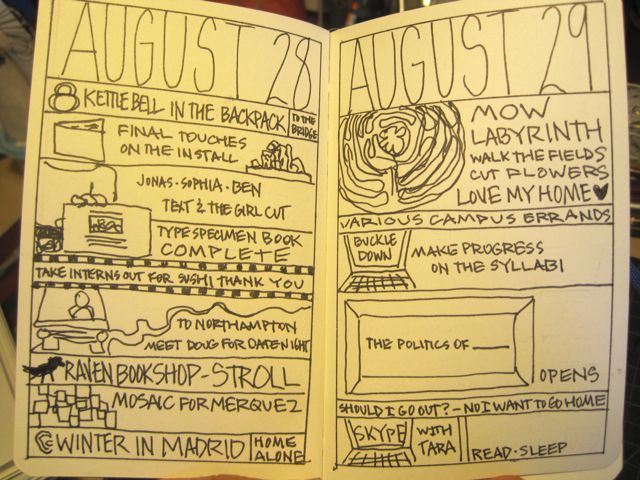 AUGUST 28
KETTLEBELL IN THE BACKPACK
TO THE
BRIDGE
FINAL TOUCHES
ON THE INSTALL
JONAS · SOPHIA · BEN
TEXT & THE GIRL CUT
TYPE SPECIMEN BOOK
COMPLETE
TAKE INTERNS OUT FOR SUSHI THANK YOU
TO NORTHAMPTON
MEET DOUG FOR DATE NIGHT
RAVEN BOOKSHOP - STROLL
MOSAIC FOR MERQUEZ
WINTER IN MADRID
HOME
ALONE
AUGUST 29
MOW
LABYRINTH
WALK THE FIELDS
CUT FLOWERS
LOVE MY HOME
VARIOUS CAMPUS ERRANDS
BUCKLE
DOWN
MAKE PROGRESS
ON THE SYLLABI
THE POLITICS OF ____
OPENS
SHOULD I GO OUT? - NO I WANT TO GO HOME
SKYPE
WITH
TARA
READ · SLEEP